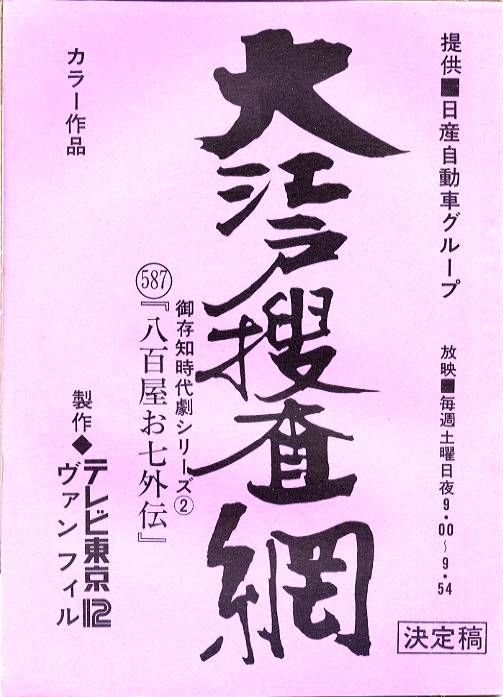 提供■日産自動車グループ
放映■毎週土曜日夜9・00〜9・54
決定稿
大江戸捜査網
御存知時代劇シリーズ②
587『八百屋お七外伝』
カラー作品
製作◆テレビ東京12
ヴァンフィル